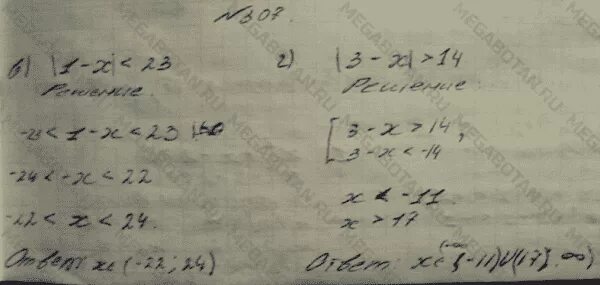 №307.
в) |1-x| < 23
Решение.
-23 < 1-x < 23
-24 < -x < 22
-22 < x < 24.
Ответ: x ∈ (-22; 24)
г) |3-x| > 14
Решение.
[3-x > 14,
3-x < -14
x < -11.
x > 17
Ответ: x ∈ (-∞; -11)∪(17; ∞)
MEGABOTAN.RU